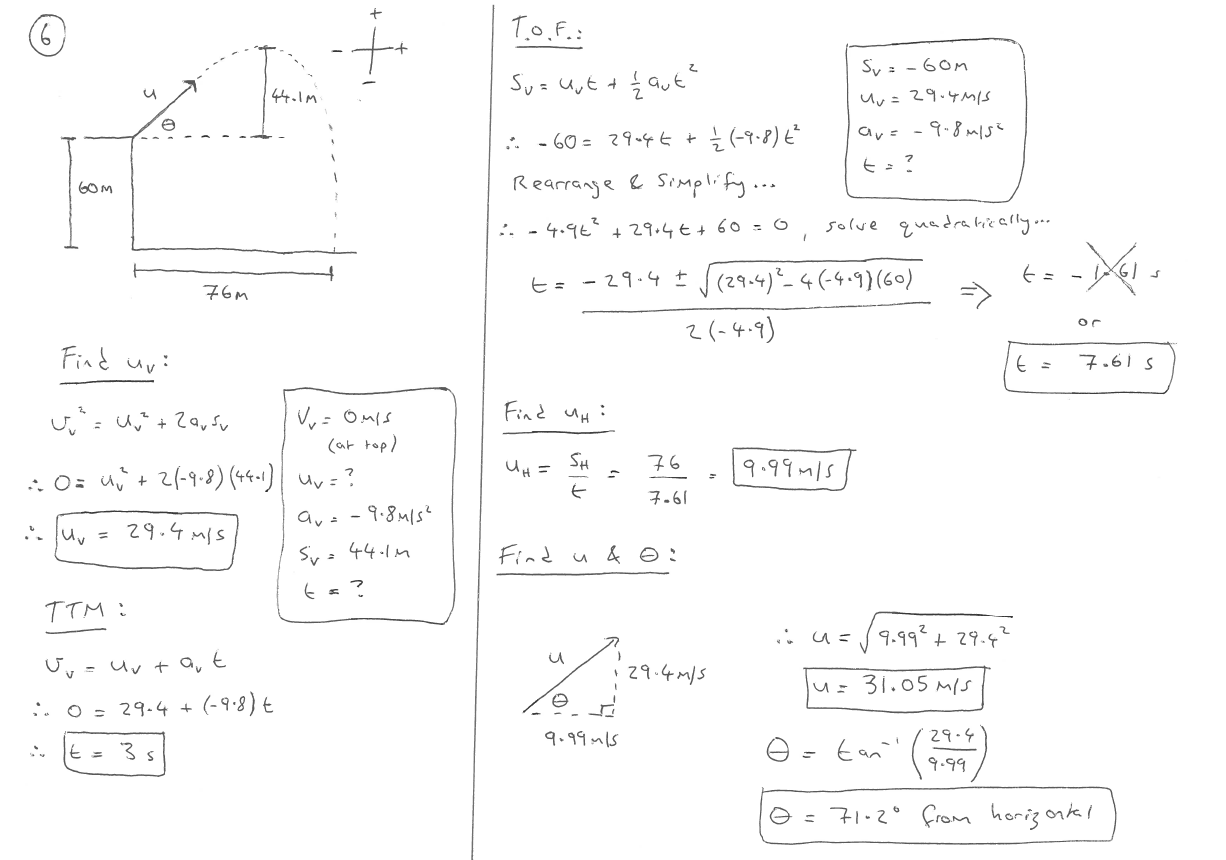 6
+
- +
-
u
θ
44.1m
60m
76m
Find u_v:
v_v² = u_v² + 2a_v s_v
∴ 0 = u_v² + 2(-9.8)(44.1)
∴ u_v = 29.4 m/s
V_v = 0 m/s
(at top)
u_v = ?
a_v = -9.8 m/s²
s_v = 44.1m
t = ?
TTM:
v_v = u_v + a_v t
∴ 0 = 29.4 + (-9.8)t
∴ t = 3 s
T.O.F.:
s_v = u_v t + ½ a_v t²
∴ -60 = 29.4t + ½(-9.8)t²
Rearrange & Simplify...
∴ -4.9t² + 29.4t + 60 = 0, solve quadratically...
t = (-29.4 ± √((29.4)² - 4(-4.9)(60))) / 2(-4.9) ⇒ t = -1.61 s
or
t = 7.61 s
s_v = -60m
u_v = 29.4 m/s
a_v = -9.8 m/s²
t = ?
Find u_H:
u_H = s_H/t = 76/7.61 = 9.99 m/s
Find u & θ:
u
θ
29.4 m/s
9.99 m/s
∴ u = √(9.99² + 29.4²)
u = 31.05 m/s
θ = tan⁻¹ (29.4/9.99)
θ = 71.2° from horizontal